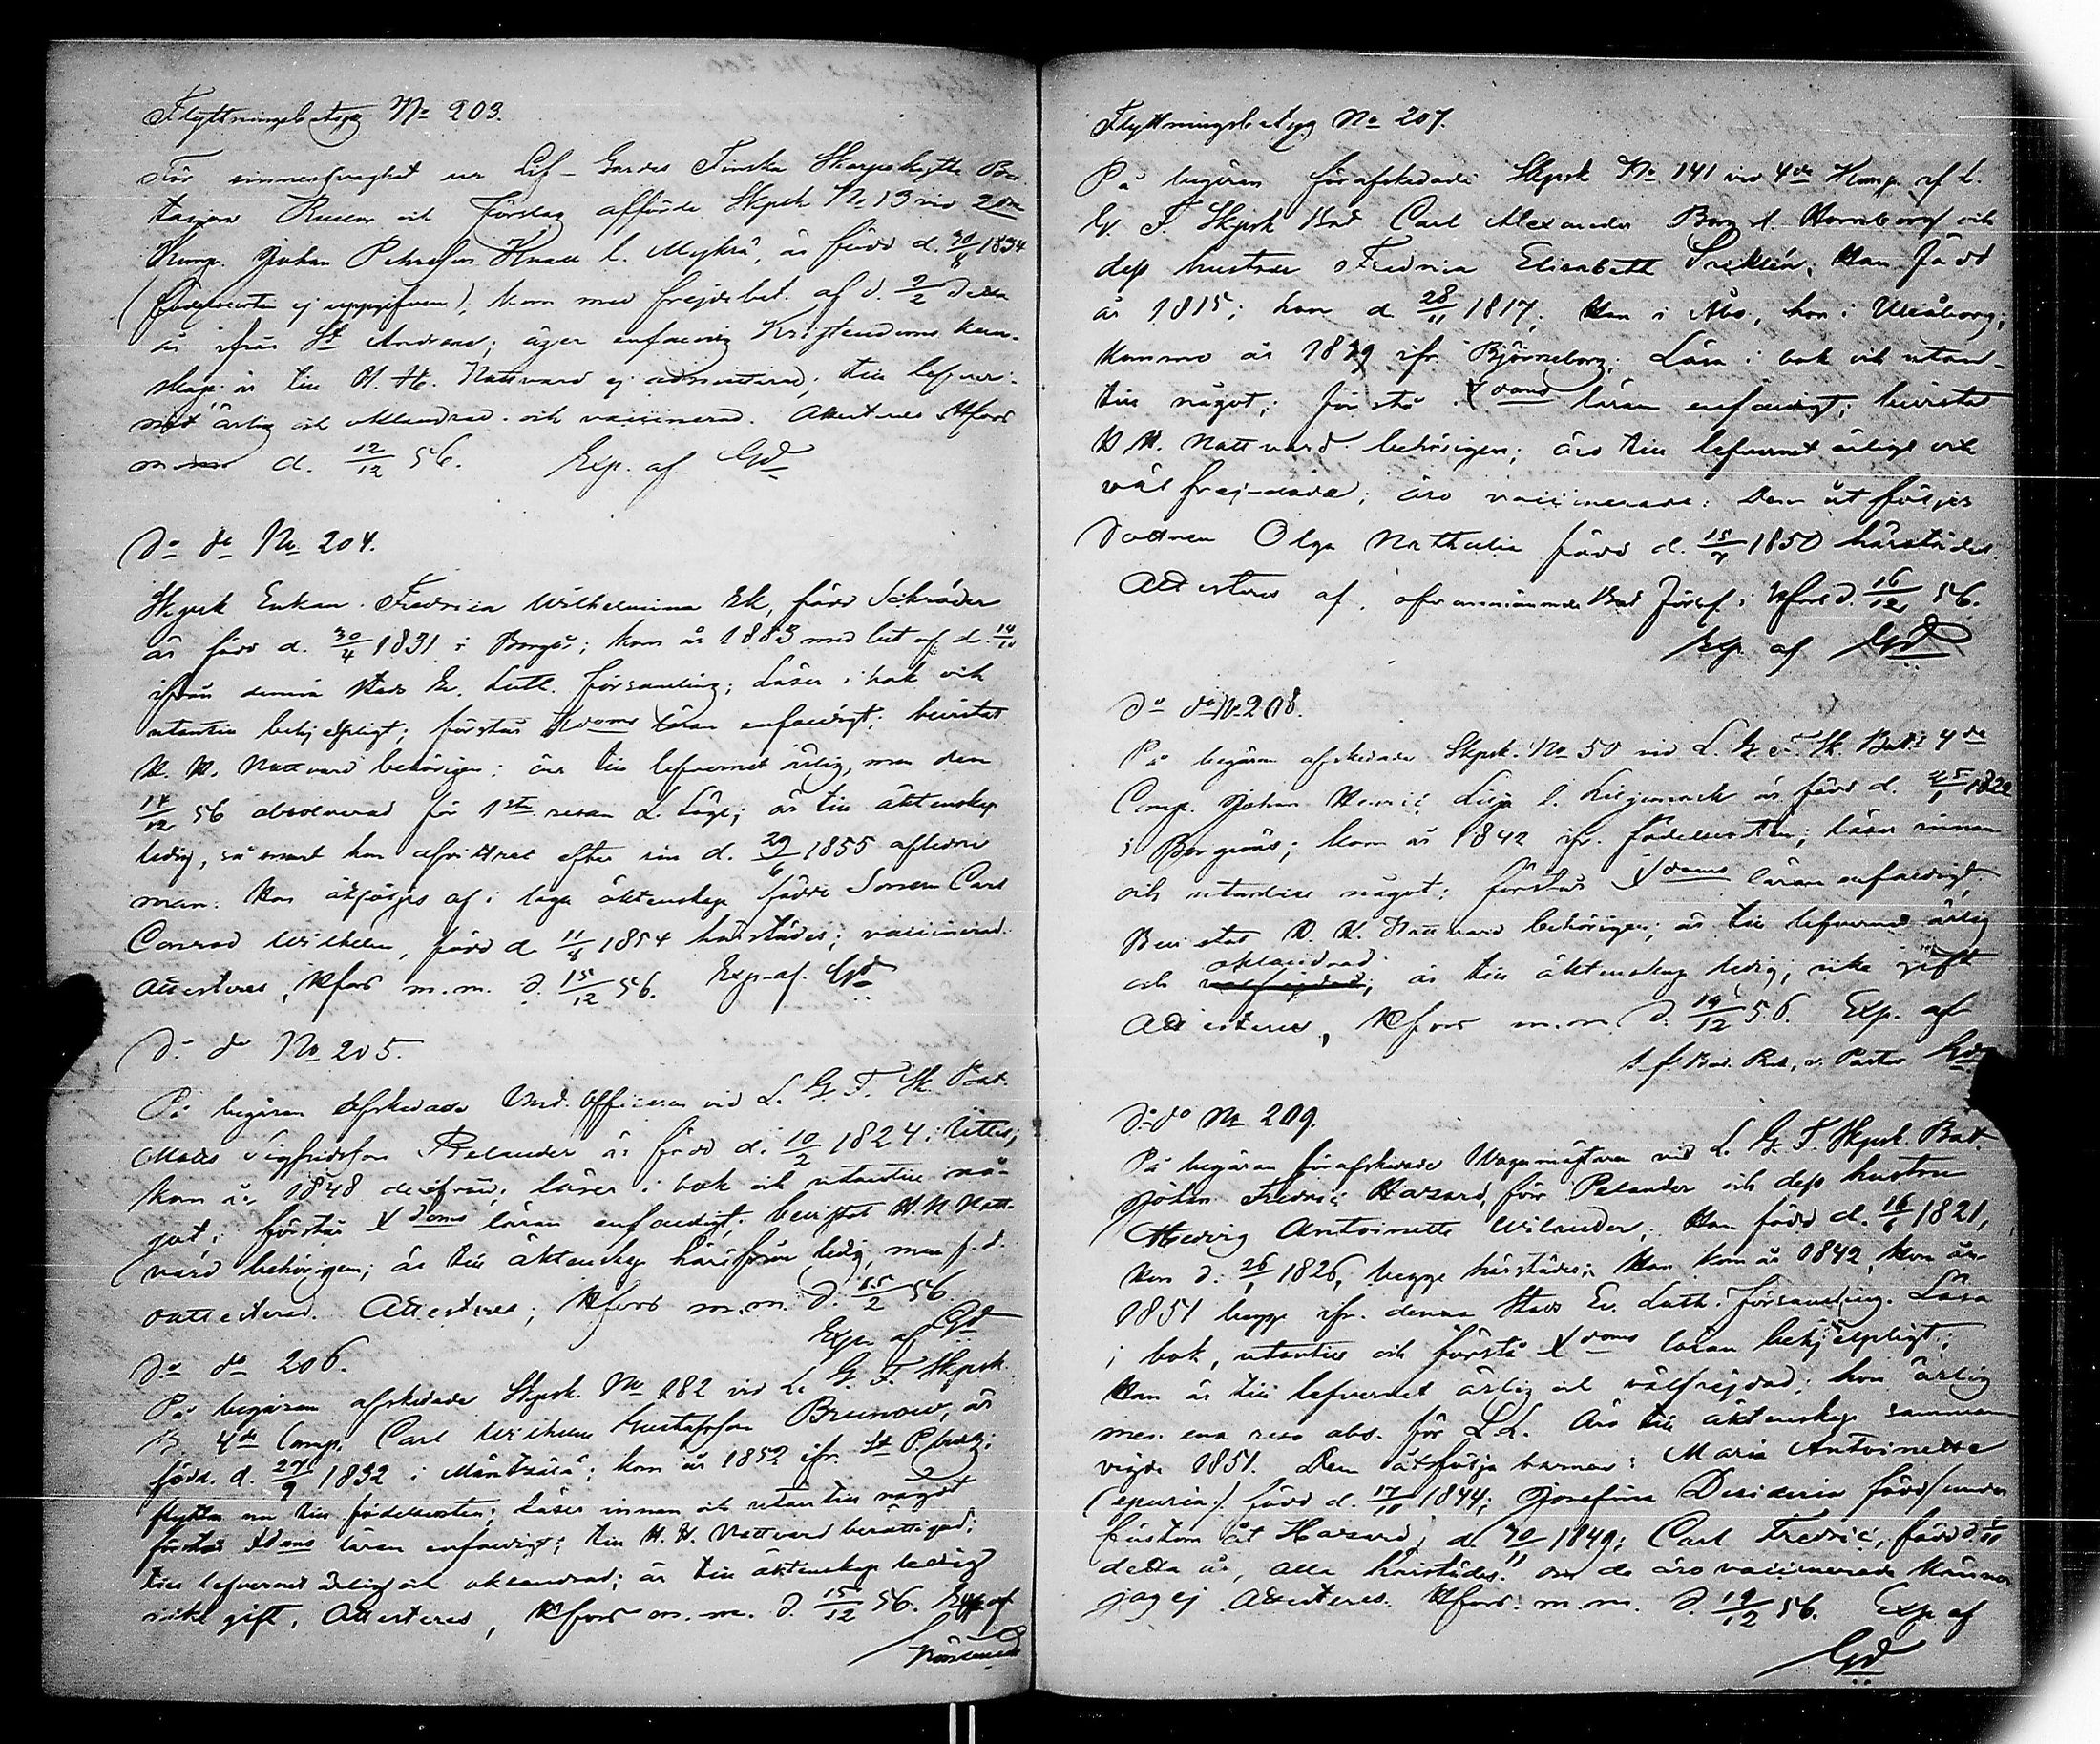 Flyttningsbetyg No 203.
För sinnessvaghet ur Lif-Gardes Finska Skarpskytte Ba-
taljon och förslag afförde Skpsk No 13 vid 2dra
Komp. Johan Petersson Knaa l. är född d. 30/8 1834
(födelseorten ej uppgifven), kom med frejdebet. af d. 2/2 detta
år ifrån St Andreae; äger enfaldig Kristendoms kun-
skap; är till H. H. Nattvard ej admitterad; till lefver-
net ärlig och oklandrad och vaccinerad. Attesteras Hfors
m.m. d. 12/12 56. Exp. af Gd
Do do No 204.
Skpsk Enkan Fredrica Wilhelmina Ek, född Schröder
är född d. 30/4 1831 i Borgå; kom år 1853 med bet af d. 14/10
ifrån denna Stads Ev. Luth. församling; Läser i bok och
utantill behjelpligt; förstår Xdoms läran enfaldigt; bevistat
H. H. Nattvard behörigen; är till lefvernet ärlig, men den
14/12 56 absolverad för 1sta resan L. Läge; är till äktenskap
ledig, så snart hon afvittrat efter sin d. 29/6 1855 aflidne
man. Hon åtföljes af i laga äktenskap födde Sonen Carl
Conrad Wilhelm, född d. 11/8 1854 härstädes; vaccinerad.
Attesteras, Hfors m.m. d. 15/12 56. Exp. af Gd
Do do No 205.
På begäran afskedade Und. Officeren vid L. G. F. Sk. Bat.
Mats Sigfridsson Relander är född d. 10/2 1824 i Sittis;
kom år 1848 derifrån; läser i bok och utantill nå-
got; förstår Xdoms läran enfaldigt; bevistat H. H. Natt-
vard behörigen; är till äktenskap härifrån ledig, men f. d.
oattesterad. Attesteras; Hfors m.m. d. 15/2 56.
Exp. af Gd
Do do 206.
På begäran afskedade Skpsk. No 182 vid L. G. F. Skpsk.
B. 4de Comp. Carl Wilhelm Gustafsson Brunow, är
född d. 27/9 1832 i Mäntzälä; kom år 1852 ifr. St P.burg;
flyttar nu till födelseorten; Läser innan och utantill något
förstår Xdoms läran enfaldigt; till H. H. Nattvard berättigad;
till lefvernet ärlig och oklandrad; är till äktenskap ledig
icke gift, Attesteras, Hfors m.m. d. 15/12 56. Exp. af
Flyttningsbetyg No 207.
På begäran förafskedade Skpsk No 141 vid 4de Komp af L.
G. F. Skpsk Bat Carl Alexander l. Hornborg och
dess hustru Fredrica Elisabeth Han född
år 1815; hon d. 28/11 1817; Han i Åbo, hon i Uleåborg;
Kommo år 1839 ifr. Björneborg; Läsa i bok och utan-
till något; förstå Xdoms läran enfaldigt; bevistat
H. H. Nattvard behörigen; äro till lefvernet ärliga och
välfrejdade; äro vaccinerade: Dem åtföljes
dottren Olga Nathalia född d. 15/7 1850 härstädes.
Attesteras af ofvannämnde Bat Förs. i Hfors d. 16/12 56.
Exp. af Gd
Do do No 208.
På begäran afskedade Skpsk. No 50 vid L. G. F. Sk. Bat:s 4de
Comp. Johan Henric Lilja l. Liljemark är född d. 25/1 1822
i Borgnäs; kom år 1842 ifr. födelseorten; läser innan
och utantill något; förstår Xdoms läran enfaldigt,
Bevistat H. H. Nattvard behörigen; är till lefvernet ärlig
och oklandrad; är till äktenskap ledig, icke gift
Attesteras, Hfors m.m. d. 19/12 56. Exp. af
t. f. Bat. Pred. o. Pastor Gd
Do do No 209.
På begäran förafskedade Wagnmästaren vid L. G. F. Skpsk. Bat
Johan Fredric Hazard, för Pelander och dess hustru
Hedvig Antoinette Wilander; Han född d. 16/6 1821,
Hon d. 26/1 1826, begge härstädes; Han kom år 1842, hon år
1851 begge ifr. denna Stads Ev. Luth. församling. Läsa
i bok, utantill och förstå Xdoms läran behjelpligt;
Han är till lefvernet ärlig och välfrejdad; hon ärlig
men ena resa abs. för L.L. Äro till äktenskap samman
vigda 1851. Dem åtfölja barnen: Maria Antoinetta
(spuria) född d. 17/11 1844; Josefina Desideria född (under
fästom åt Hazard) d. 30/11 1849; Carl Fredric, född d. 1/11
detta år, alla härstädes. Om de äro vaccinerade känner
jag ej. Attesteras. Hfors. m.m. d. 19/12 56. Exp. af
Gd